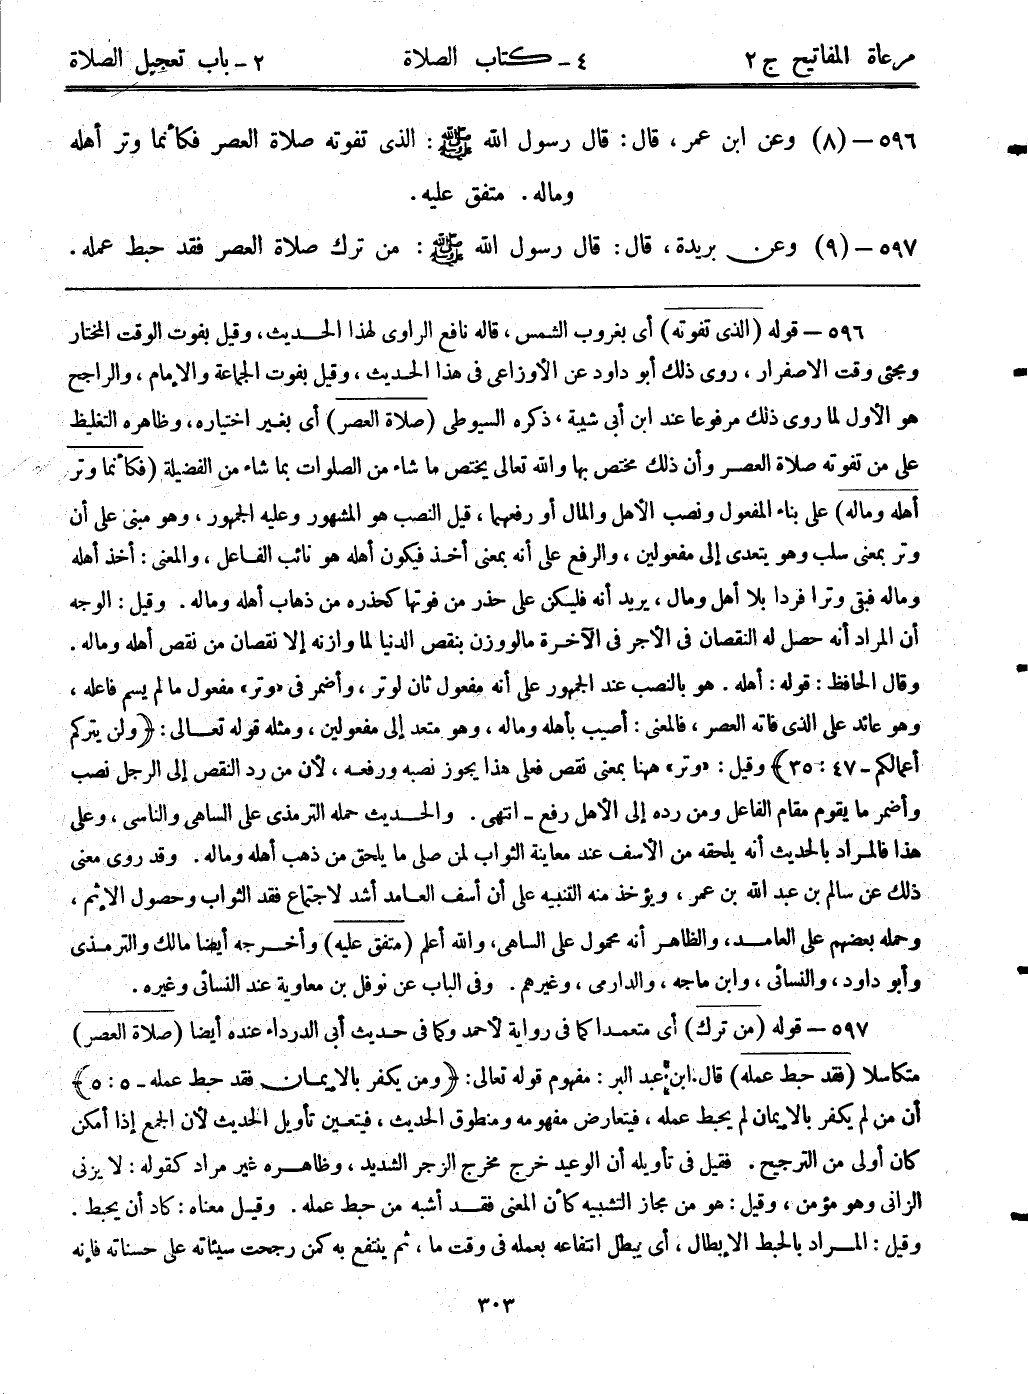 مرعاة المفاتيح ج ٢ ٤ - كتاب الصلاة ٢ - باب تعجيل الصلاة
٥٩٦ - (٨) وعن ابن عمر، قال: قال رسول الله ﷺ: الذى تفوته صلاة العصر فكأنما وتر أهله
وماله. متفق عليه.
٥٩٧ - (٩) وعن بريدة، قال: قال رسول الله ﷺ: من ترك صلاة العصر فقد حبط عمله.
٥٩٦ - قوله (الذى تفوته) أى بغروب الشمس، قاله نافع الراوى لهذا الحديث، وقيل بفوت الوقت المختار
ومجئى وقت الاصفرار، روى ذلك أبو داود عن الأوزاعى فى هذا الحديث، وقيل بفوت الجماعة والإمام، والراجح
هو الأول لما روى ذلك مرفوعا عند ابن أبى شيبة، ذكره السيوطى (صلاة العصر) أى بغير اختياره، وظاهره التغليظ
على من تفوته صلاة العصر وأن ذلك مختص بها والله تعالى يختص ما شاء من الصلوات بما شاء من الفضيلة (فكأنما وتر
أهله وماله) على بناء المفعول ونصب الأهل والمال أو رفعهما، قيل النصب هو المشهور وعليه الجمهور، وهو مبنى على أن
وتر بمعنى سلب وهو يتعدى إلى مفعولين، والرفع على أنه بمعنى أخذ فيكون أهله هو نائب الفاعل، والمعنى: أخذ أهله
وماله فبقى وترا فردا بلا أهل ومال، يريد أنه فليكن على حذر من فوتها كحذره من ذهاب أهله وماله. وقيل: الوجه
أن المراد أنه حصل له النقصان فى الأجر فى الآخرة مالووزن بنقص الدنيا لما وازنه إلا نقصان من نقص أهله وماله.
وقال الحافظ: قوله: أهله. هو بالنصب عند الجمهور على أنه مفعول ثان لوتر، وأضمر فى «وتر» مفعول مالم يسم فاعله،
وهو عائد على الذى فاته العصر، فالمعنى: أصيب بأهله وماله، وهو متعد إلى مفعولين، ومثله قوله تعالى: ﴿ولن يتركم
أعمالكم - ٤٧: ٣٥﴾ وقيل: «وتر» ههنا بمعنى نقص فعلى هذا يجوز نصبه ورفعه، لأن من رد النقص إلى الرجل نصب
وأضمر ما يقوم مقام الفاعل ومن رده إلى الأهل رفع - انتهى. والحديث حمله الترمذى على الساهى والناسى، وعلى
هذا فالمراد بالحديث أنه يلحقه من الأسف عند معاينة الثواب لمن صلى ما يلحق من ذهب أهله وماله. وقد روى معنى
ذلك عن سالم بن عبد الله بن عمر، ويؤخذ منه التنبيه على أن أسف العامد أشد لاجتماع فقد الثواب وحصول الإثم،
وحمله بعضهم على العامد، والظاهر أنه محمول على الساهى، والله أعلم (متفق عليه) وأخرجه أيضا مالك والترمذى
وأبو داود، والنسائى، وابن ماجه، والدارمى، وغيرهم. وفى الباب عن نوفل بن معاوية عند النسائى وغيره.
٥٩٧ - قوله (من ترك) أى متعمدا كما فى رواية لأحمد وكما فى حديث أبى الدرداء عنده أيضا (صلاة العصر)
متكاسلا (فقد حبط عمله) قال ابن عبد البر: مفهوم قوله تعالى: ﴿ومن يكفر بالإيمان فقد حبط عمله - ٥: ٥﴾
أن من لم يكفر بالإيمان لم يحبط عمله، فيتعارض مفهومه ومنطوق الحديث، فيتعين تأويل الحديث لأن الجمع إذا أمكن
كان أولى من الترجيح. فقيل فى تأويله أن الوعيد خرج مخرج الزجر الشديد، وظاهره غير مراد كقوله: لا يزنى
الزانى وهو مؤمن، وقيل: هو من مجاز التشبيه كأن المعنى فقد أشبه من حبط عمله. وقيل معناه: كاد أن يحبط.
وقيل: المراد بالحبط الإبطال، أى يبطل انتفاعه بعمله فى وقت ما، ثم ينتفع به كمن رجحت سيئاته على حسناته فإنه
٣٠٣